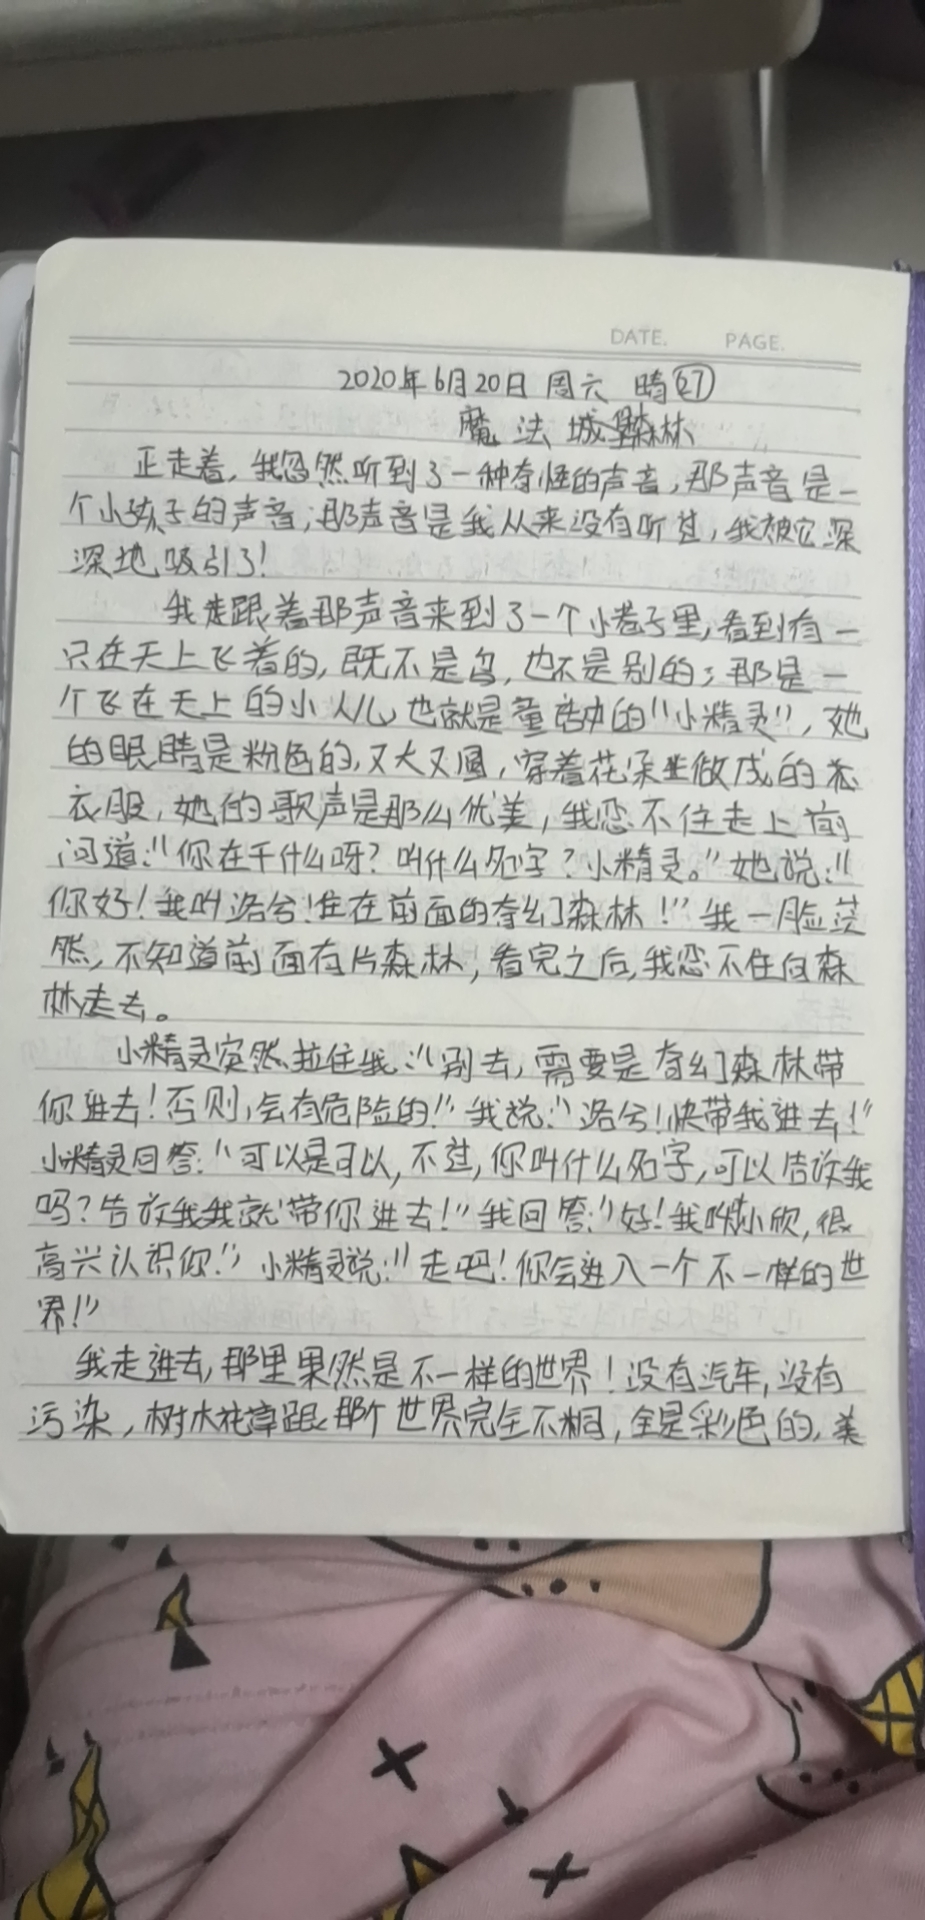 DATE. PAGE.
2020年6月20日 周六 晴 27
魔法森林
正走着，我忽然听到了一种奇怪的声音，那声音是一
个小孩子的声音；那声音是我从来没有听过，我被它深
深地吸引了！
我走跟着那声音来到了一个小巷子里，看到有一
只在天上飞着的，既不是鸟，也不是别的；那是一
个飞在天上的小人儿，也就是童话中的“小精灵”，她
的眼睛是粉色的，又大又圆，穿着花朵做成的
衣服，她的歌声是那么优美，我忍不住走上前
问道：“你在干什么呀？叫什么名字？小精灵。”她说：“
你好！我叫洛兮！住在前面的奇幻森林！”我一脸茫
然，不知道前面有片森林，看完之后，我忍不住向森
林走去。
小精灵突然拉住我：“别去，需要是奇幻森林带
你进去！否则，会有危险的！”我说：“洛兮！快带我进去！”
小精灵回答：“可以是可以，不过，你叫什么名字，可以告诉我
吗？告诉我我就带你进去！”我回答：“好！我叫小欣，很
高兴认识你！”小精灵说：“走吧！你会进入一个不一样的世
界！”
我走进去，那里果然是不一样的世界！没有汽车，没有
污染，树木花草跟那个世界完全不相同，全是彩色的，美